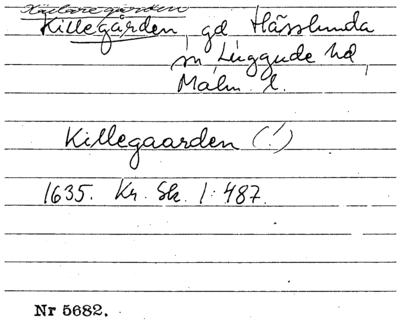 Killegården, gd Hässlunda
sn, Luggude hd,
Malm. l.
Killegaarden (!)
1635. Kr. Sk. 1:487.
Nr 5682.